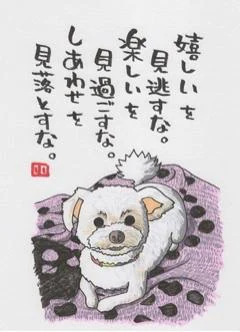 嬉しいを
見逃すな。
楽しいを
見過ごすな。
しあわせを
見落とすな。